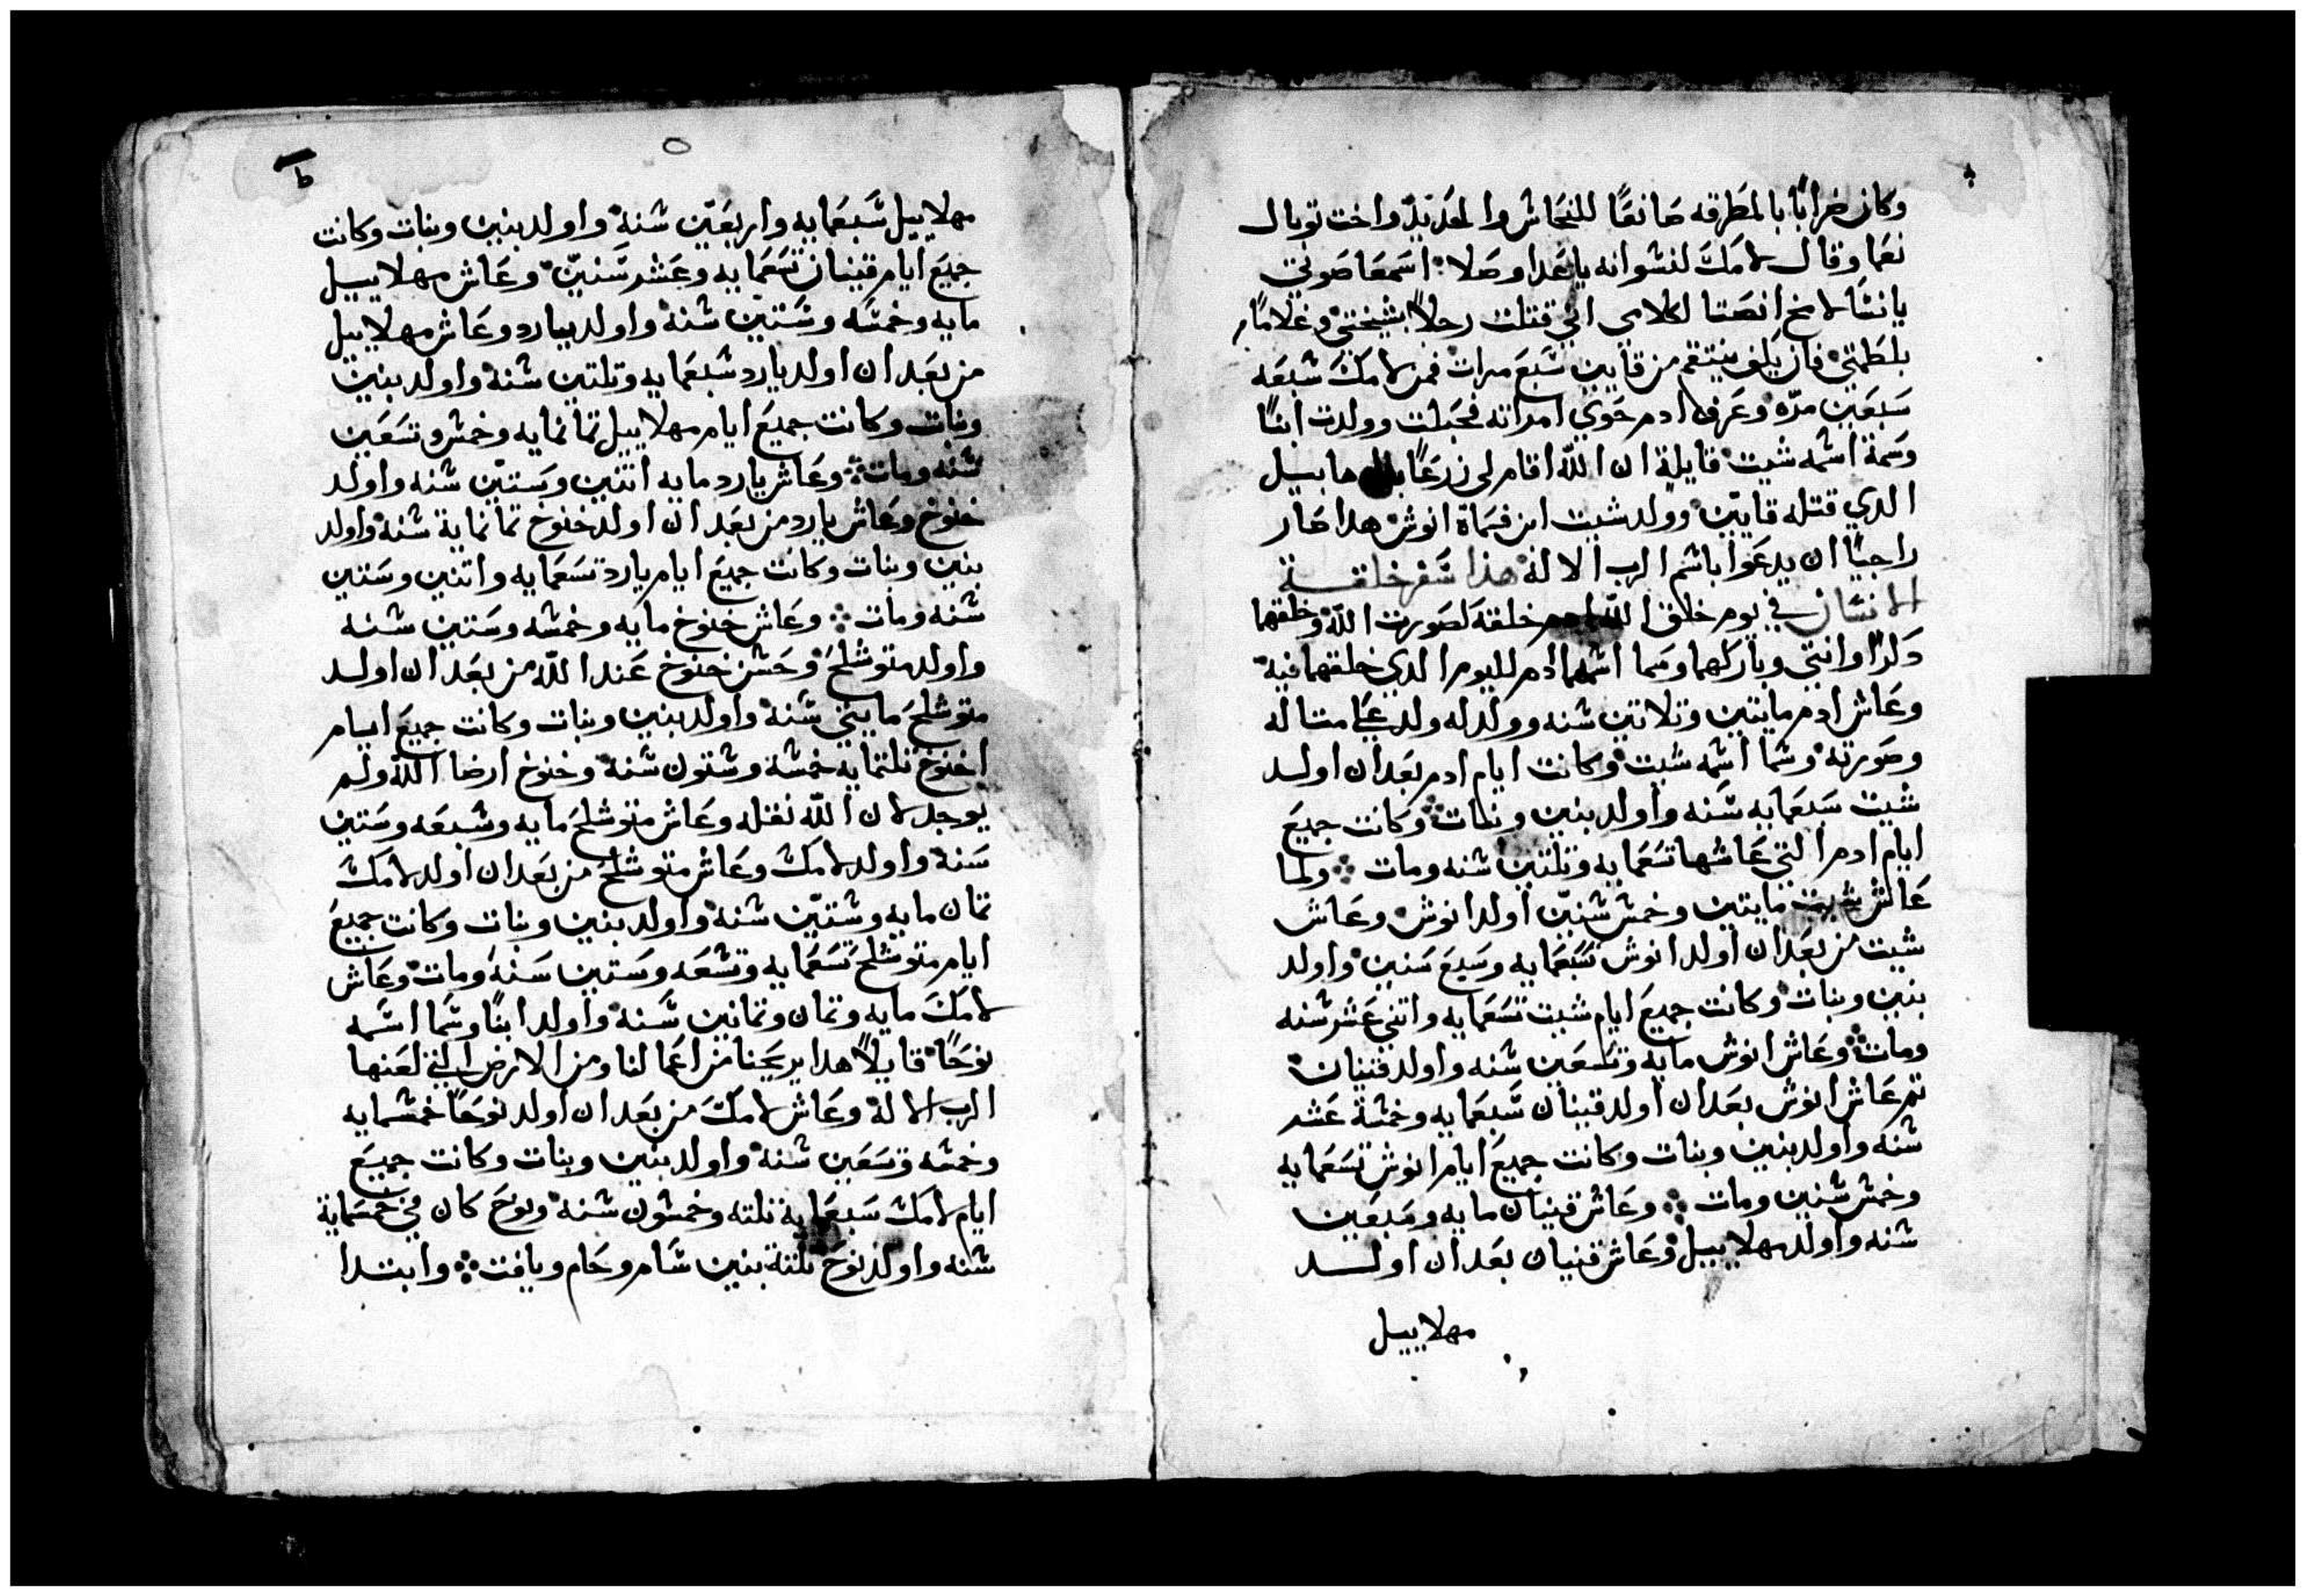 وكان ضرابًا بالمطرقه صانعًا للنحاش والحديد واخت توبال
نعما وقال لامك لنشوانه يا عدا وصلا اسمعا صوتي
يا نشا لامخ انصتا لكلامي اني قتلت رجلاً بشيختي وغلامًا
بلطمتي فان يلف ينتقم من قايين سَبعَ مرات فمن لامك شبعه
سَبعَين مرّه وعَرف ادم حَوي امراته فحبلت وولدت ابنًا
وسَمة اشمه شيت قايلة ان الله اقام لي زرعًا هابيل
الدي قتله قايين وولد شيت ابن فسَماة انوش هدا صَار
راجيًا ان يدعَوا باشم الرب الالاه هذا سَفر خلقة
الانسَان في يوم خلق الله ادم خلقة لصَورت الله وخلقهما
دكرًا وانتي وباركهما وسَما اشمهما ادم لليوم الدي خلقهما فيه
وعَاش ادم مايتين وتلاتين شنه وولد له ولد عَلي متاله
وصَورته وشما اشمه شيت وكانت ايام ادم بعَد ان اولد
شيت سَبعَمايه شَنه واولد بنين وبنات وكانت جميعَ
ايام ادم التي عَاشها تسَعَمايه وتلتين شنه ومات ولما
عَاش شيت مايتين وخمش شنين اولد انوش وعَاش
شيت من بعَد ان اولد انوش سَبعَمايه وسَبعَ سَنين واولد
بنين وبنات وكانت جميعَ ايام شيت تسَعَمايه واتني عَشر شنه
ومات وعَاش انوش مايه وتسَعَين شنه واولد قينان
تم عَاش انوش بعَد ان اولد قينان سَبعَمايه وخمشة عَشر
شنه واولد بنين وبنات وكانت جميعَ ايام انوش تسَعَمايه
وخمش شنين ومات وعَاش قينان مايه وسَبعَين
شنه واولد مهلاييل وعَاش قنيان بعَد ان اولد
مهلاييل
ط
مهلاييل سَبعَمايه واربعَين شنه واولد بنين وبنات وكانت
جميعَ ايام قينان تسَعَمايه وعَشر سَنين وعَاش مهلاييل
مايه وخمسَه وسَتين شنه واولد بيارد وعَاش مهلاييل
من بعَد ان اولد يارد شبعَمايه وتلتين شنه واولد بنين
وبنات وكانت جميعَ ايام مهلاييل تمانمايه وخمش وتسَعَين
شنه ومات وعَاش يارد مايه اتنين وسَتين شنه واولد
خنوخ وعَاش يارد من بعَد ان اولد خنوخ تمانماية شنه واولد
بنين وبنات وكانت جميعَ ايام يارد تسَعَمايه واتنين وسَتين
شنه ومات وعَاش خنوخ مايه وخمشه وسَتين شنه
واولد متوشلحَ وحَشن خنوخ عَند الله من بعَد ان اولد
متوشلحَ مايتي شنه واولد بنين وبنات وكانت جميعَ ايام
اخنوخ تلتمايه خمشة وشتون شنه وخنوخ ارضا الله ولم
يوجد لان الله نقله وعَاش متوشلحَ مايه وشبعَه وسَتين
سَنه واولد لامك وعَاش متوشلح من بعَد ان اولد لامك
تمان مايه وشتين شنه واولد بنين وبنات وكانت جميعَ
ايام متوشلح تسَعَمايه وتشعَه وسَتين سَنه ومات وعَاش
لامك مايه وتمان وتمانين شَنه واولد ابنًا وشَما اشَمه
نوحًا قايلاً هدا يريحَنا من اعَمالنا ومن الارض التي لعَنها
الرب الالاه وعَاش لامك من بعَد ان اولد نوحًا خمشمايه
وخمشه وتسَعَين شنه واولد بنين وبنات وكانت جميعَ
ايام لامك سَبعَمايه تلته وخمشون شنه ونوحَ كان في خمسَماية
شنه واولد نوحَ تلتة بنين شَام وحَام ويافت وابتدا